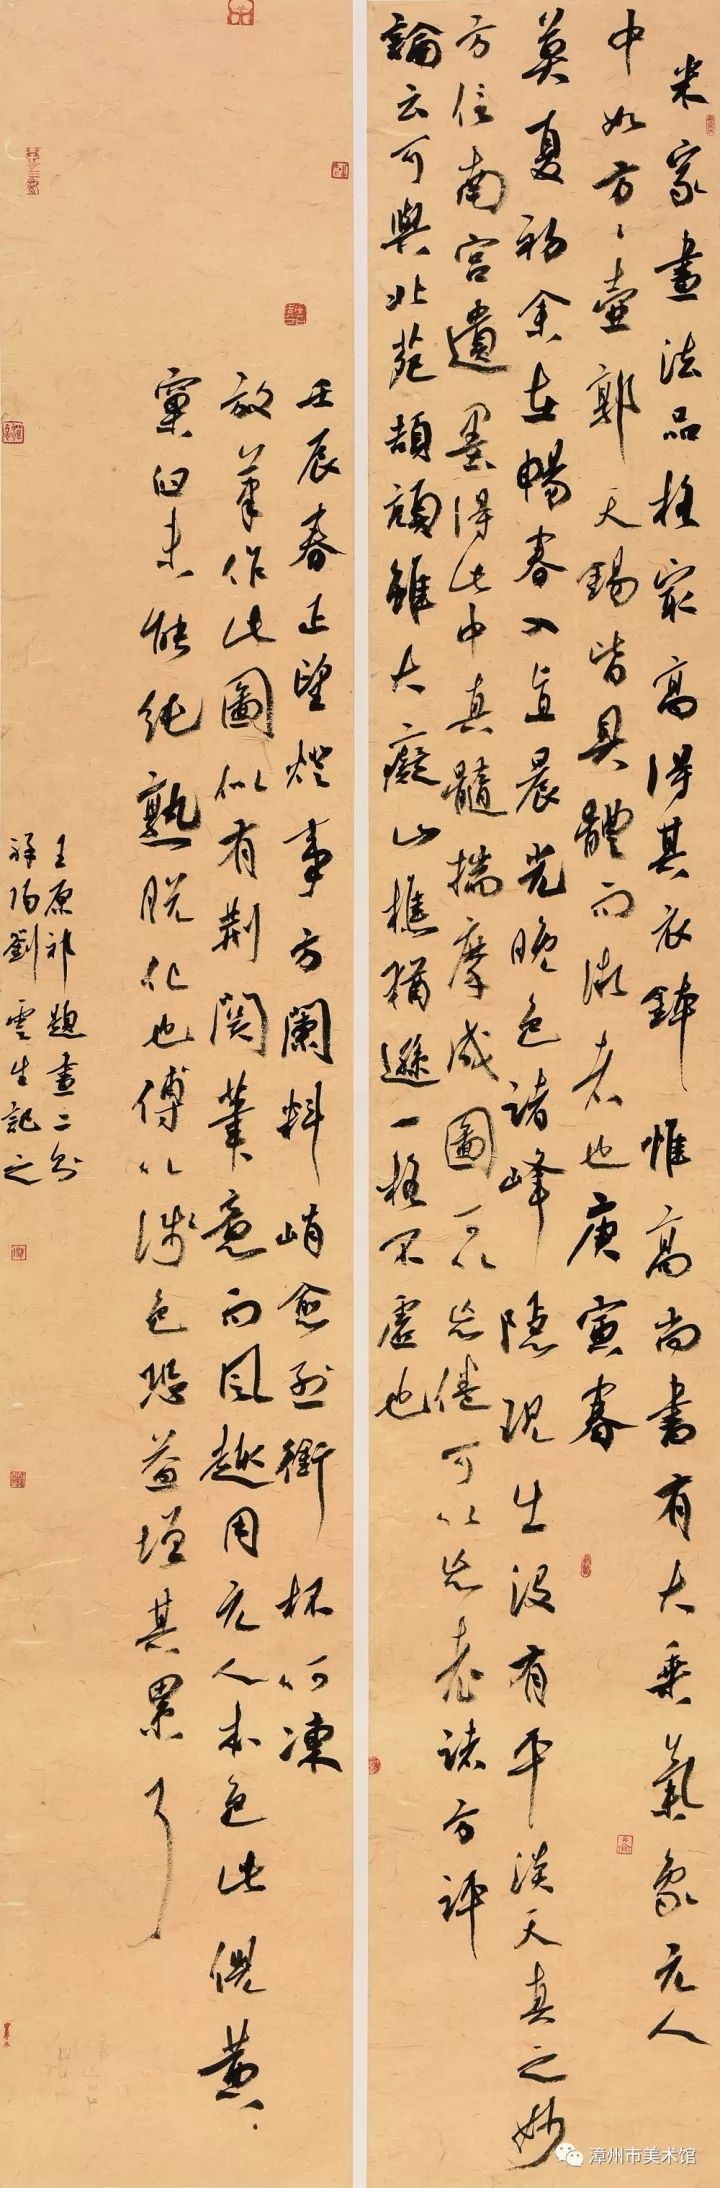 米家畫法品格最高得其衣鉢惟高尚書有大乘氣象元人
中如方方壺郭天錫皆具體而微者也庚寅春
莫夏初余在暢春入直晨光晚色諸峰隱現出沒有平淡天真之妙
方信南宮遺墨得此中真髓揣摩成圖可以忘倦可以忘老諸方評
論云可與北苑頡頏雖大癡山樵猶遜一格不虛也
壬辰春正望燈事方闌料峭愈烈銜杯呵凍
放筆作此圖似有荊關筆意而風趣用元人本色此倪黃
窠臼未能純熟脫化也傅以淺色恐益增其累耳
王原祁題畫二則
祥陽劉雲生記之
漳州市美术馆